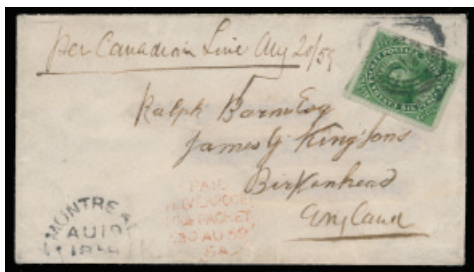 per Canadian Line Aug 20/59
Ralph Barn Esq
James G Kingsons
Birkenhead
England
MONTREAL
AU 19
PAID
LIVERPOOL
PACKET
30 AU 59